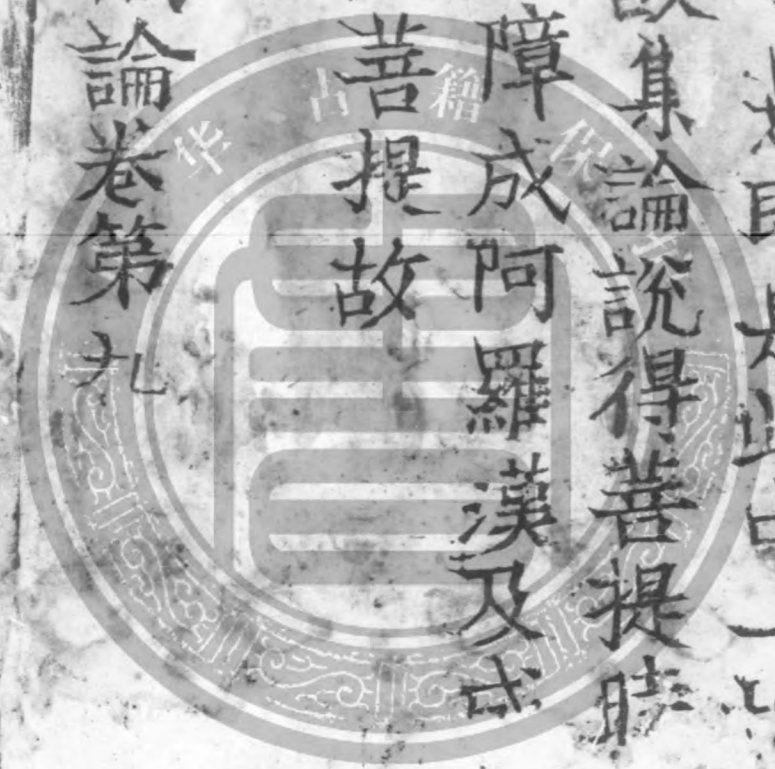 故集論説得菩提時
障成阿羅漢及成
菩提故
論卷第九
华古籍保